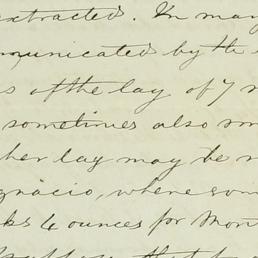 extracted. In many
municated by the
s of the lay of 7
sometimes also
her lay may be
gnacio, where som
ks 6 ounces for Mon